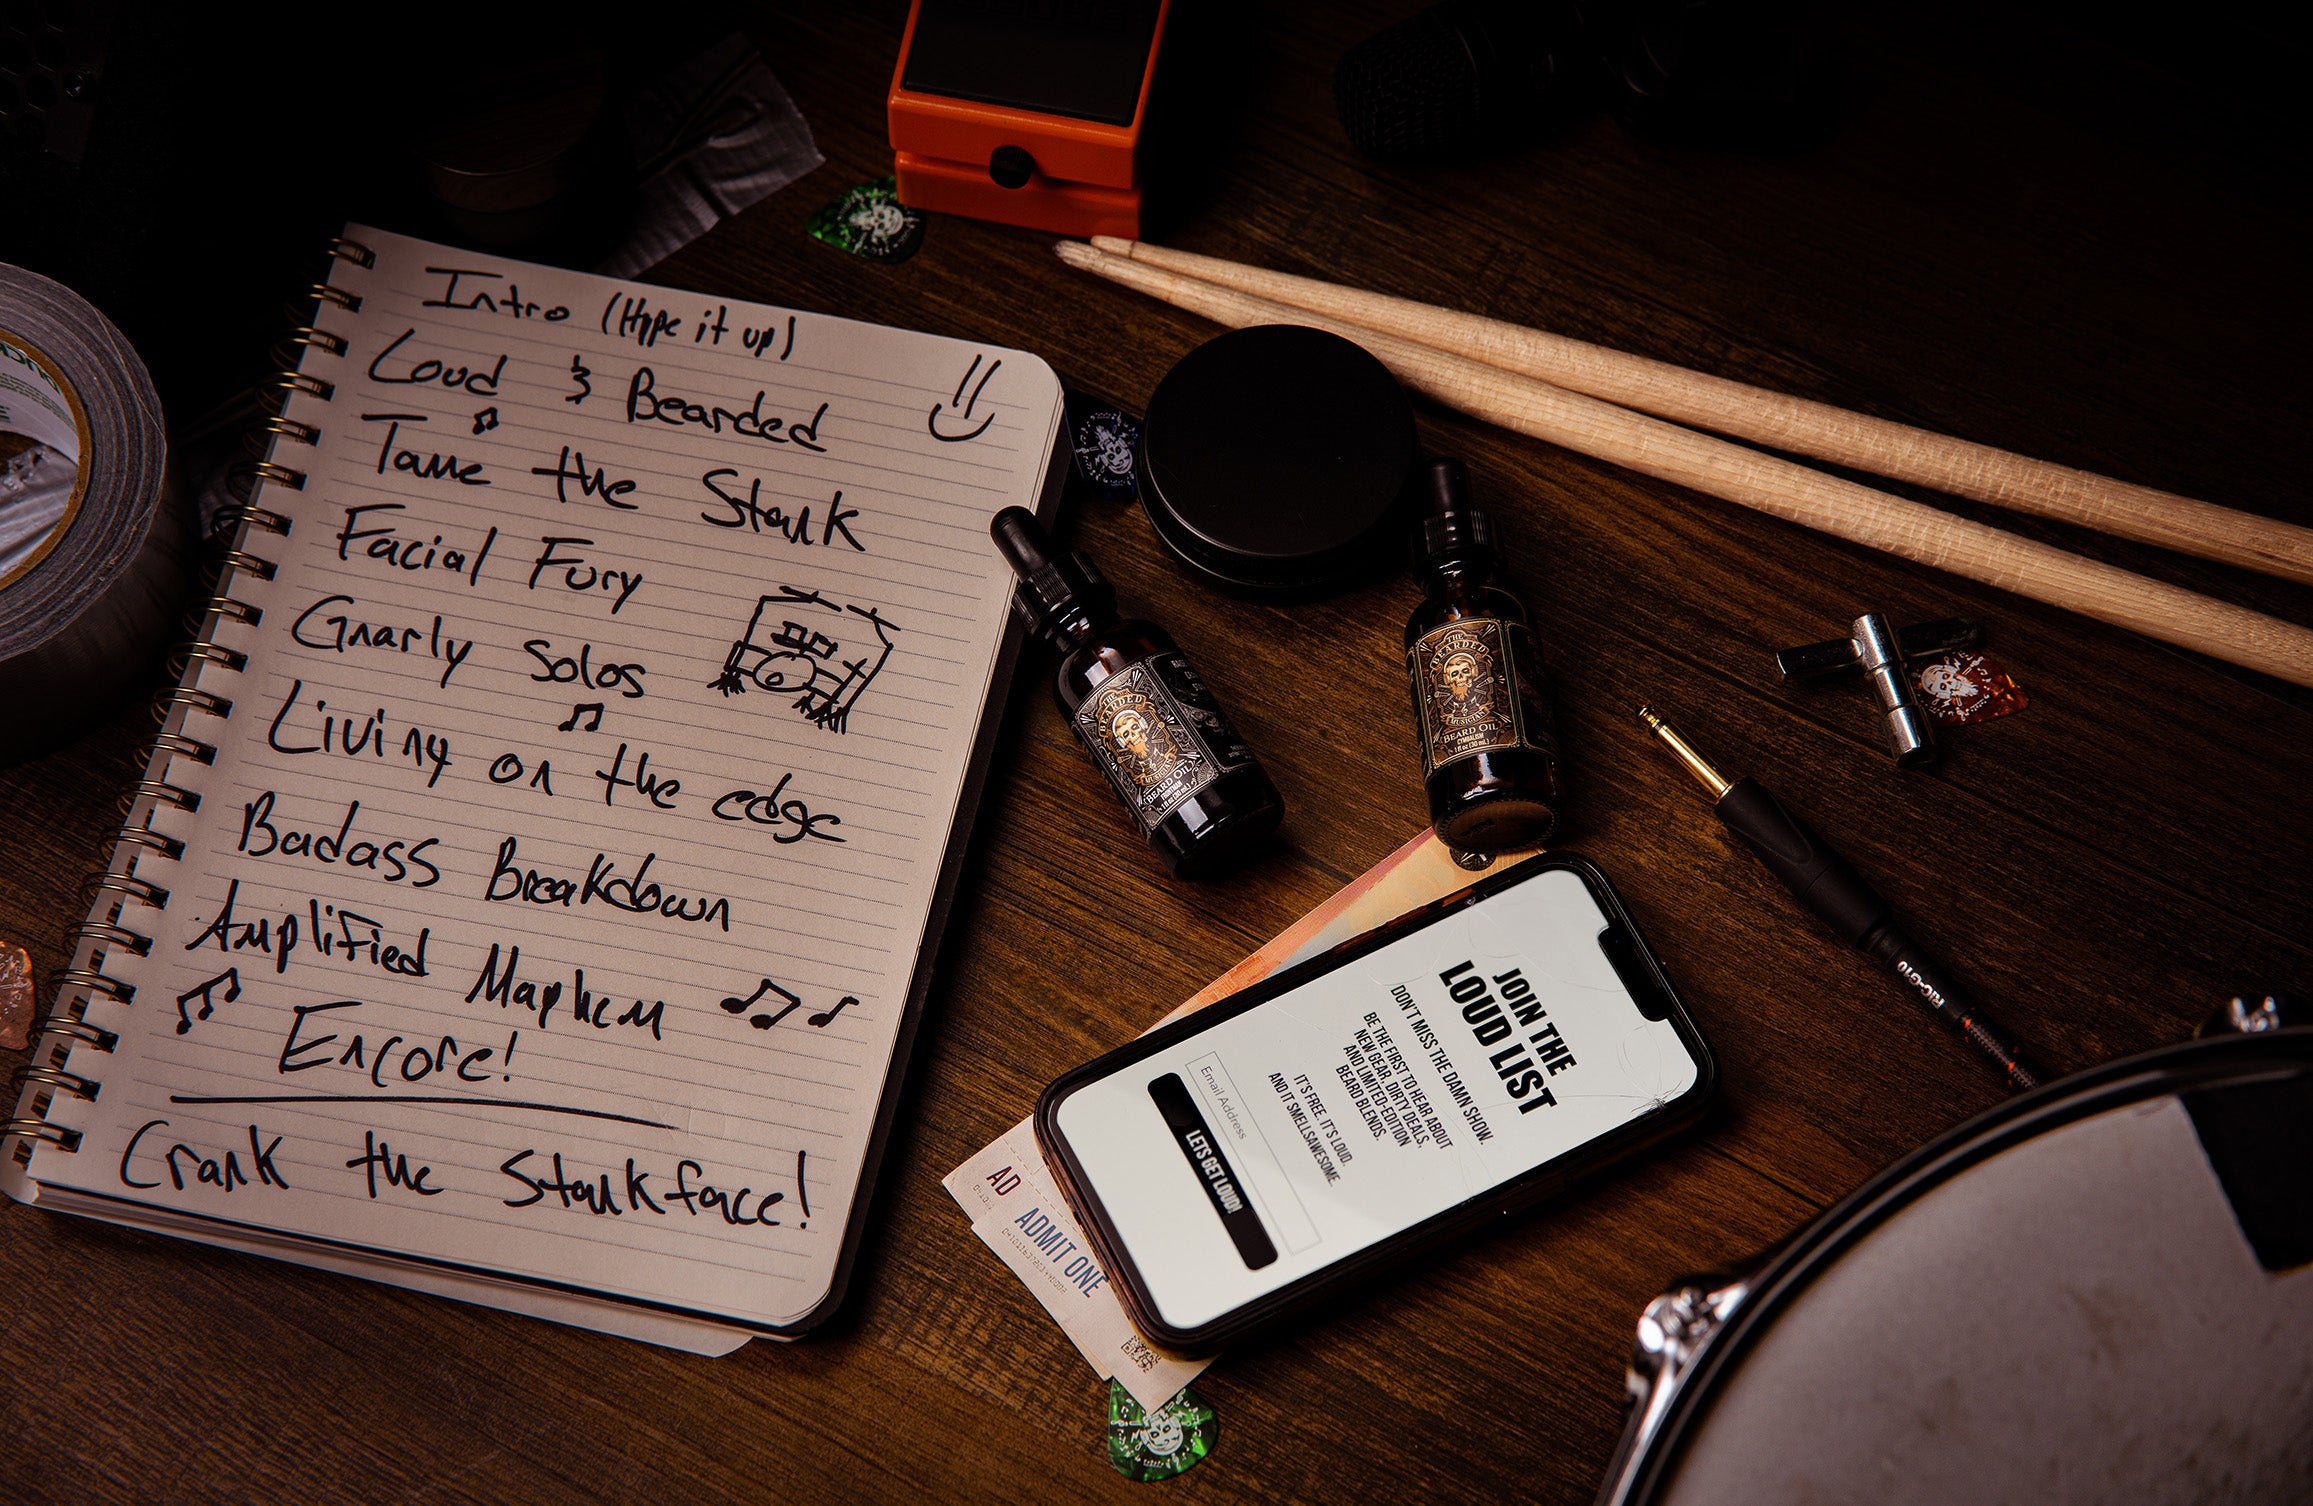 Intro (Hype it up)
Loud & Bearded
Tame the Stank
Facial Fury
Gnarly Solos
Living on the edge
Badass Breakdown
Amplified Mayhem
Encore!
Crank the Stankface!
THE
BEARDED
MUSICIAN
BEARD OIL
FRONTMAN
1 fl oz (30 mL)
THE
BEARDED
MUSICIAN
BEARD OIL
CYMBALISM
1 fl oz (30 mL)
RIC-G10
JOIN THE
LOUD LIST
DON'T MISS THE DAMN SHOW
BE THE FIRST TO HEAR ABOUT
NEW GEAR, DIRTY DEALS,
AND LIMITED-EDITION
BEARD BLENDS.
IT'S FREE. IT'S LOUD.
AND IT SMELLS AWESOME.
Email Address
LETS GET LOUD!
AD
ADMIT ONE